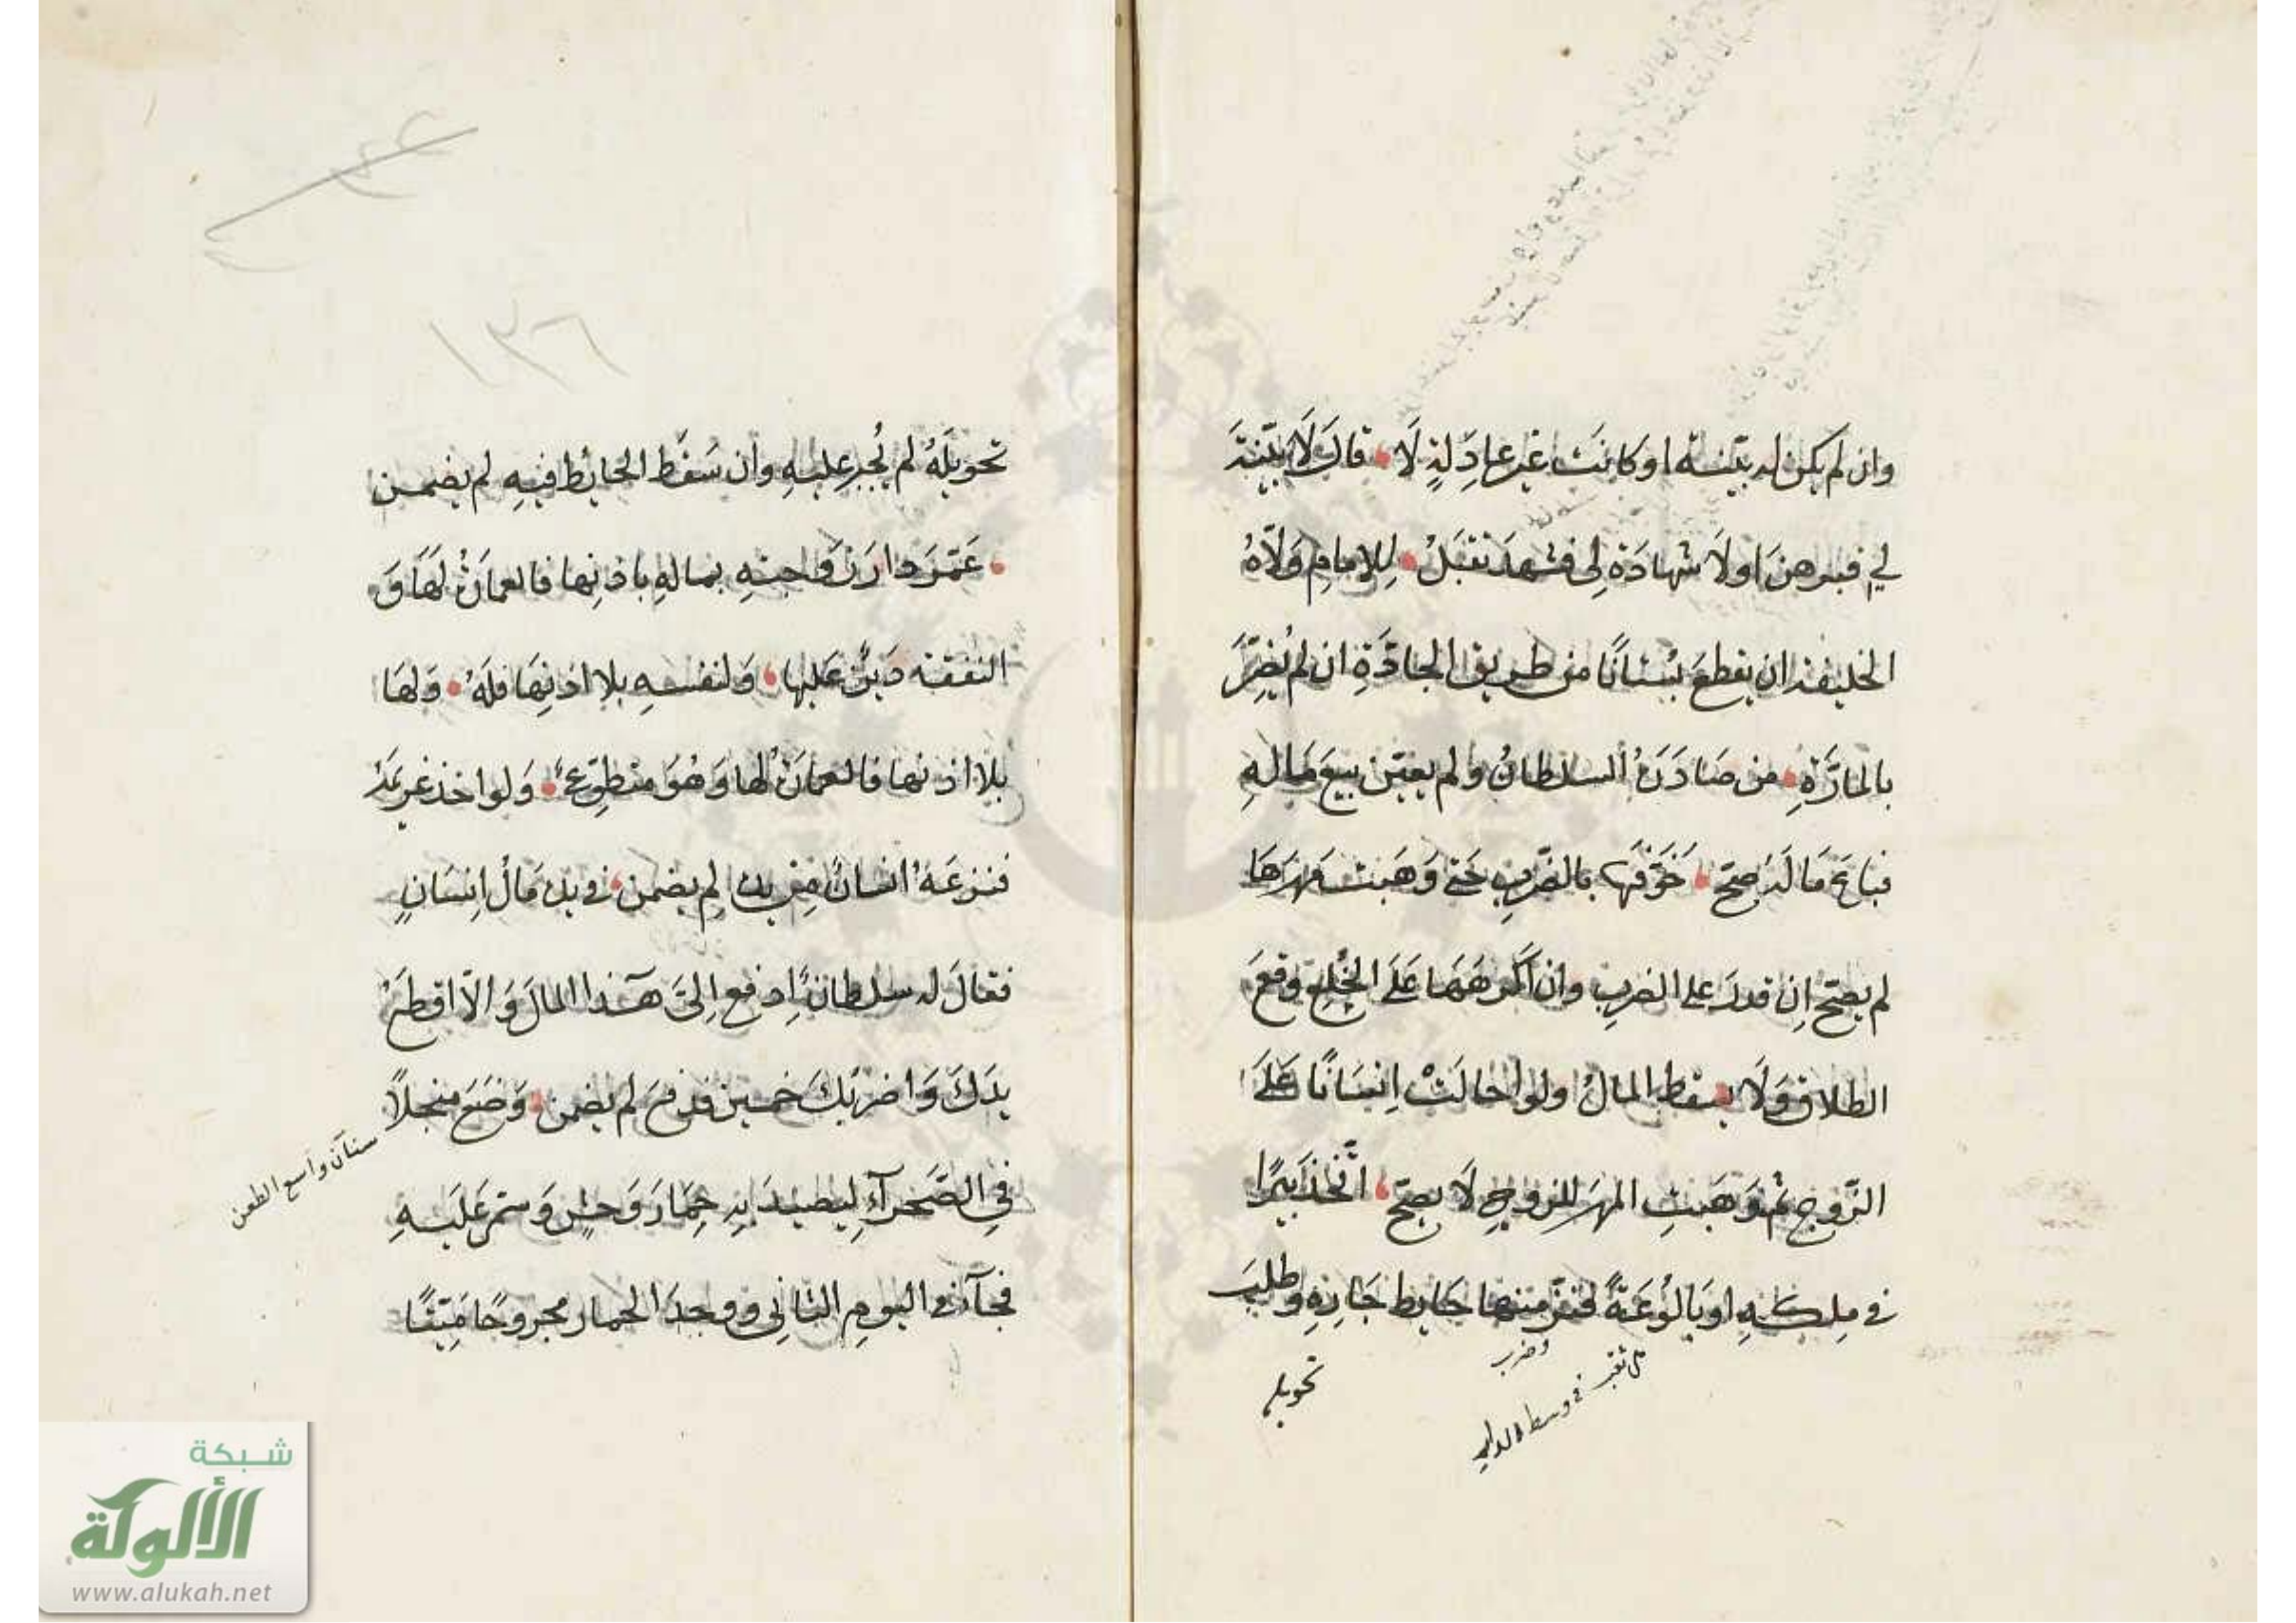 وان لم يكن له بيّنة او كانت غير عادِلةٍ لَا قالَ لَا بيّنَةَ
لي فبرهنَ او لَا شهادَةَ لي فشهدَ تقبَلُ للإمامِ وَلّاهُ
الخليفة ان يقطعَ بُستانًا من طريق الجادَّةِ ان لم يُضِرَّ
بالمارَّةِ من صَادَرَهُ السلطانُ ولم يعيّن بيعَ مَالهِ
فباعَ مَالَهُ صحّ خَوَّفَها بالضّربِ حَتى وَهَبت مَهرَهَا
لم يصحّ اِن قدرَ على الضربِ وان اَكرَهَهَا عَلَى الخُلعِ وقعَ
الطلاق وَلَا يسقط المالُ ولو احالَتْ اِنسَانًا عَلَى
الزّوج ثم وَهَبتِ المهرَ للزوجِ لا يصحّ اتّخذَ بيرًا
في مِلكهِ او بَالُوعَةً فنزّ منها حَايط جَارِهِ وطلبَ
تحويله
في وسط الدار
تحويلَهُ لم يُجبر عليهِ وان سَقَط الحايُط فيهِ لم يضمن
عَمّرَ دارَ زَوجتهِ بمالهِ باذنِها فالعمارَةُ لَهَا وَ
النفقة دَينٌ عَليها وَلنفسهِ بلا اذنِهَا فلَهُ وَلهَا
بلا اذنها فالعمارَةُ لها وَهُوَ متطوّعٌ وَلو اخذ غريمَهُ
فنزعَهُ انسانٌ مِن يده لم يضمن في يده مَالُ اِنسَانٍ
فقالَ له سلطانٌ اِدفع اِليَّ هَذا المالَ وَالّا اقطَعْ
يدَكَ وَاضربكَ خمسين فدفعَ لم يضمن وَضَعَ منجلًا
في الصَّحرآءِ ليصيدَ بهِ حِمَارَ وَحشٍ وَسمّى عَلَيهِ
فجآءَ في اليومِ الثانِي ووجدَ الحمار مجروحًا مَيّتًا
سنان واسع الطعن
١٣٦
شبكة
الألوكة
www.alukah.net